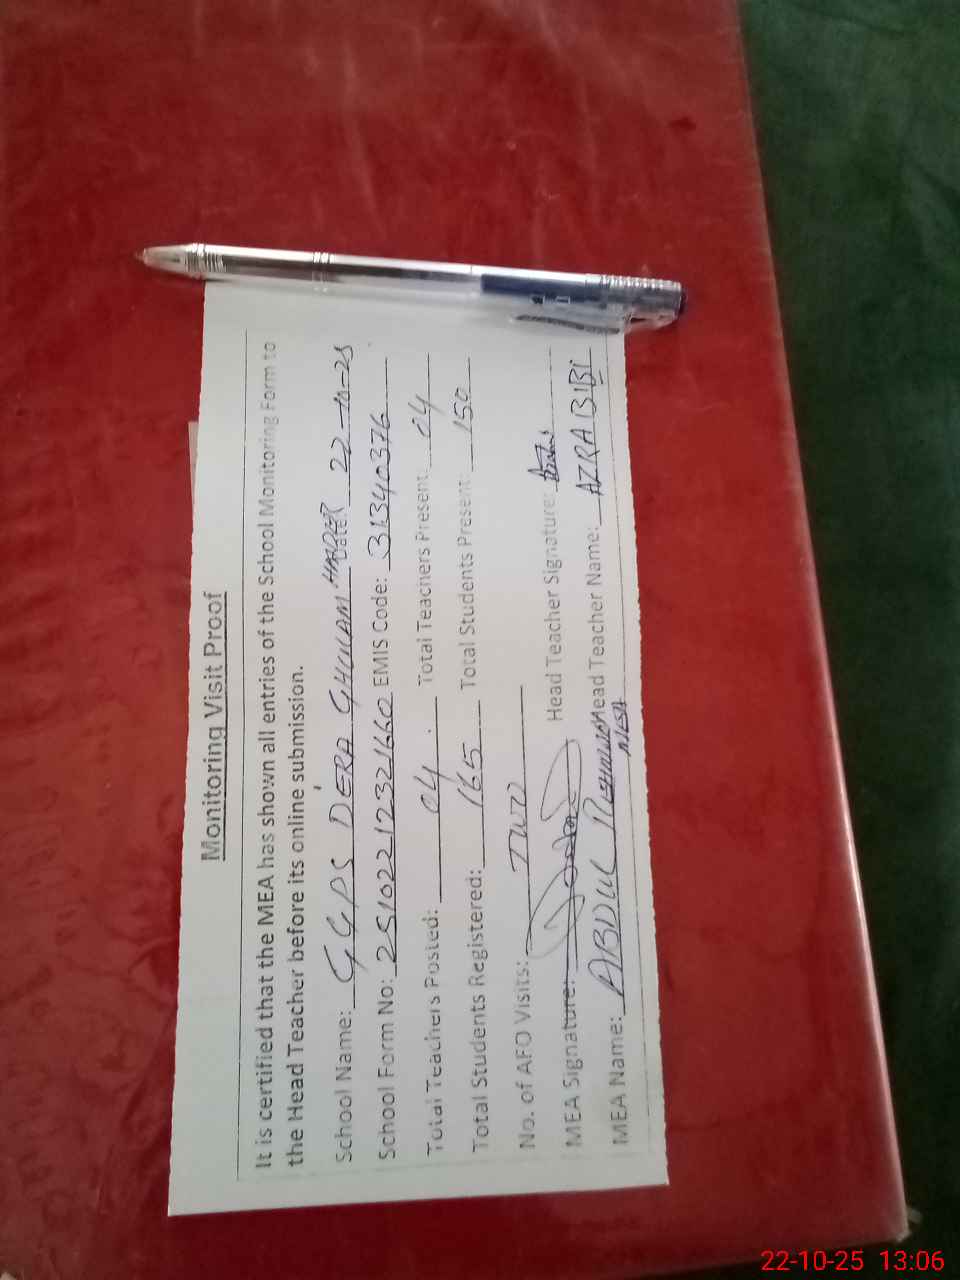 Monitoring Visit Proof
It is certified that the MEA has shown all entries of the School Monitoring Form to
the Head Teacher before its online submission.
School Name: GGPS DERA GHULAM HAIDER Date: 22-10-25
School Form No: 2510221232166 0 EMIS Code: 31340376
Total Teachers Posted: 04 Total Teachers Present: 04
Total Students Registered: 165 Total Students Present: 150
No. of AFO Visits: TWO
MEA Signature: Head Teacher Signature:
MEA Name: ABDUL REHMAN MEA Head Teacher Name: AZRA BIBI
22-10-25 13:06